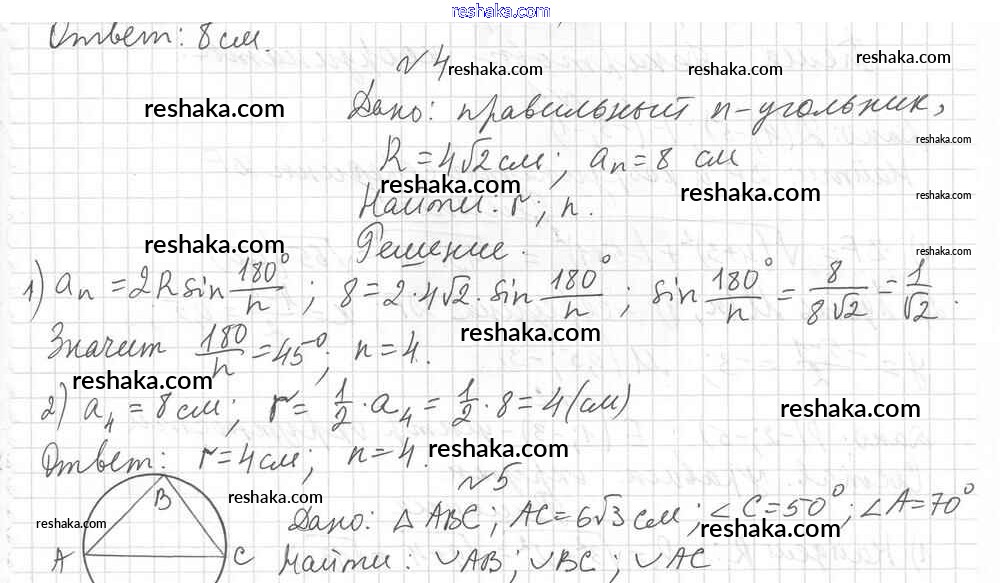 reshaka.com
Ответ: 8 см.
№ 4
reshaka.com
reshaka.com
reshaka.com
Дано: правильный n-угольник,
reshaka.com
R = 4√2 см; aₙ = 8 см
reshaka.com
reshaka.com
reshaka.com
Найти: r; n.
reshaka.com
Решение.
reshaka.com
1) aₙ = 2R sin 180°/n; 8 = 2·4√2· sin 180°/n; sin 180°/n = 8/8√2 = 1/√2.
reshaka.com
Значит 180/n = 45°; n = 4.
reshaka.com
2) a₄ = 8 см; r = 1/2 · a₄ = 1/2 · 8 = 4 (см)
reshaka.com
reshaka.com
Ответ: r = 4 см; n = 4.
№ 5
B
reshaka.com
Дано: △ABC; AC = 6√3 см; ∠C = 50°; ∠A = 70°
reshaka.com
reshaka.com
A C Найти: ∪AB; ∪BC; ∪AC